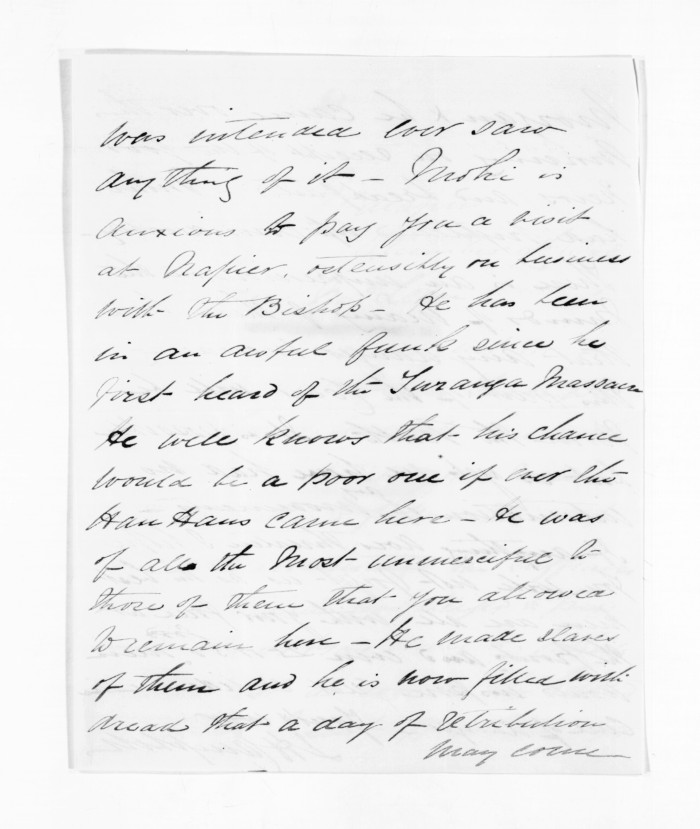 was intended ever saw
anything of it - Mohi is
anxious to pay you a visit
at Napier, ostensibly on business
with the Bishop - He has been
in an awful funk since he
first heard of the Turanga Massacre
He well knows that his chance
would be a poor one if ever the
Hau Haus came here - He was
of all the most unmerciful to
those of them that you allowed
to remain here - He made slaves
of them and he is now filled with
dread that a day of retribution
may come -